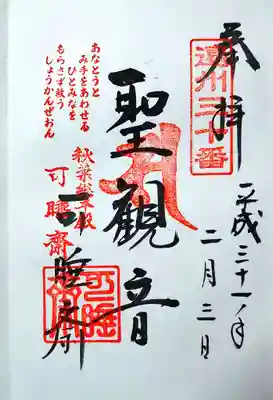 奉拝
遠州三十番
平成三十一年
二月三日
聖観音
あなとうと
み手をあわせる
ひとみなを
もらさず救う
しょうかんぜおん
秋葉総本殿
可睡齋
可睡斎